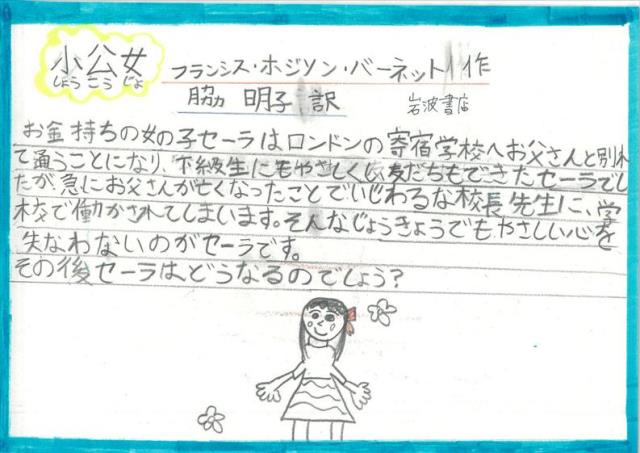 小公女
しょうこうじょ
フランシス・ホジソン・バーネット作
脇 明子 訳 岩波書店
お金持ちの女の子セーラはロンドンの寄宿学校へお父さんと別れ
て通うことになり、下級生にもやさしくし、友だちもできたセーラでし
たが、急にお父さんが亡くなったことでいじわるな校長先生に、学
校で働かされてしまいます。そんなじょうきょうでもやさしい心を
失なわないのがセーラです。
その後セーラは、どうなるのでしょう?